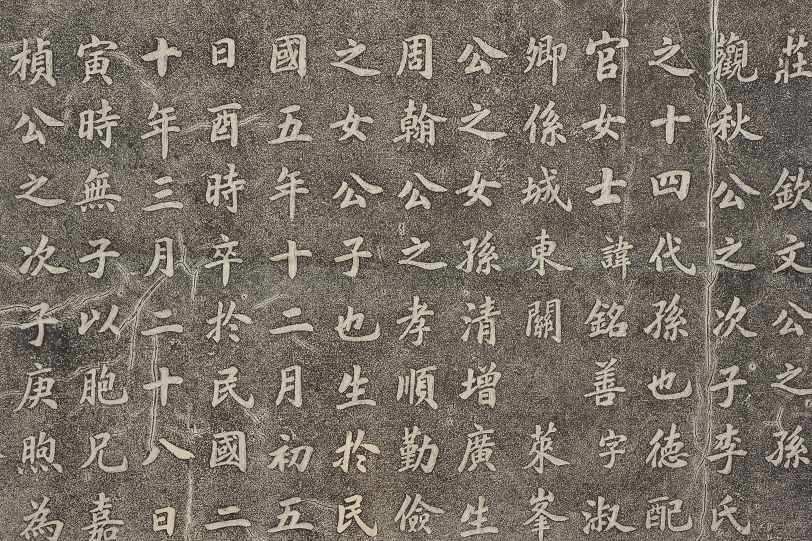 莊 欽文公之孫
觀秋公之次子李氏
之十四代孫也德配
官女士諱銘善字淑
卿係城東關 萊峯
公之女孫清增廣生
周翰公之孝順勤儉
之女公子也生於民
國五年十二月初五
日酉時卒於民國二
十年三月二十八日
寅時無子以胞兄嘉
楨公之次子庚煦為